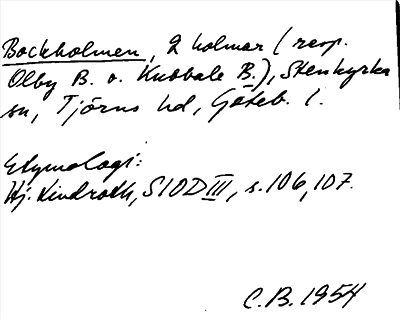 Bockholmen, 2 holmar (resp.
Olby B. o. Kubbale B.), Stenkyrka
sn, Tjörns hd, Göteb. l.
Etymologi:
Hj. Lindroth, SIOD III, s. 106, 107.
C.B. 1954